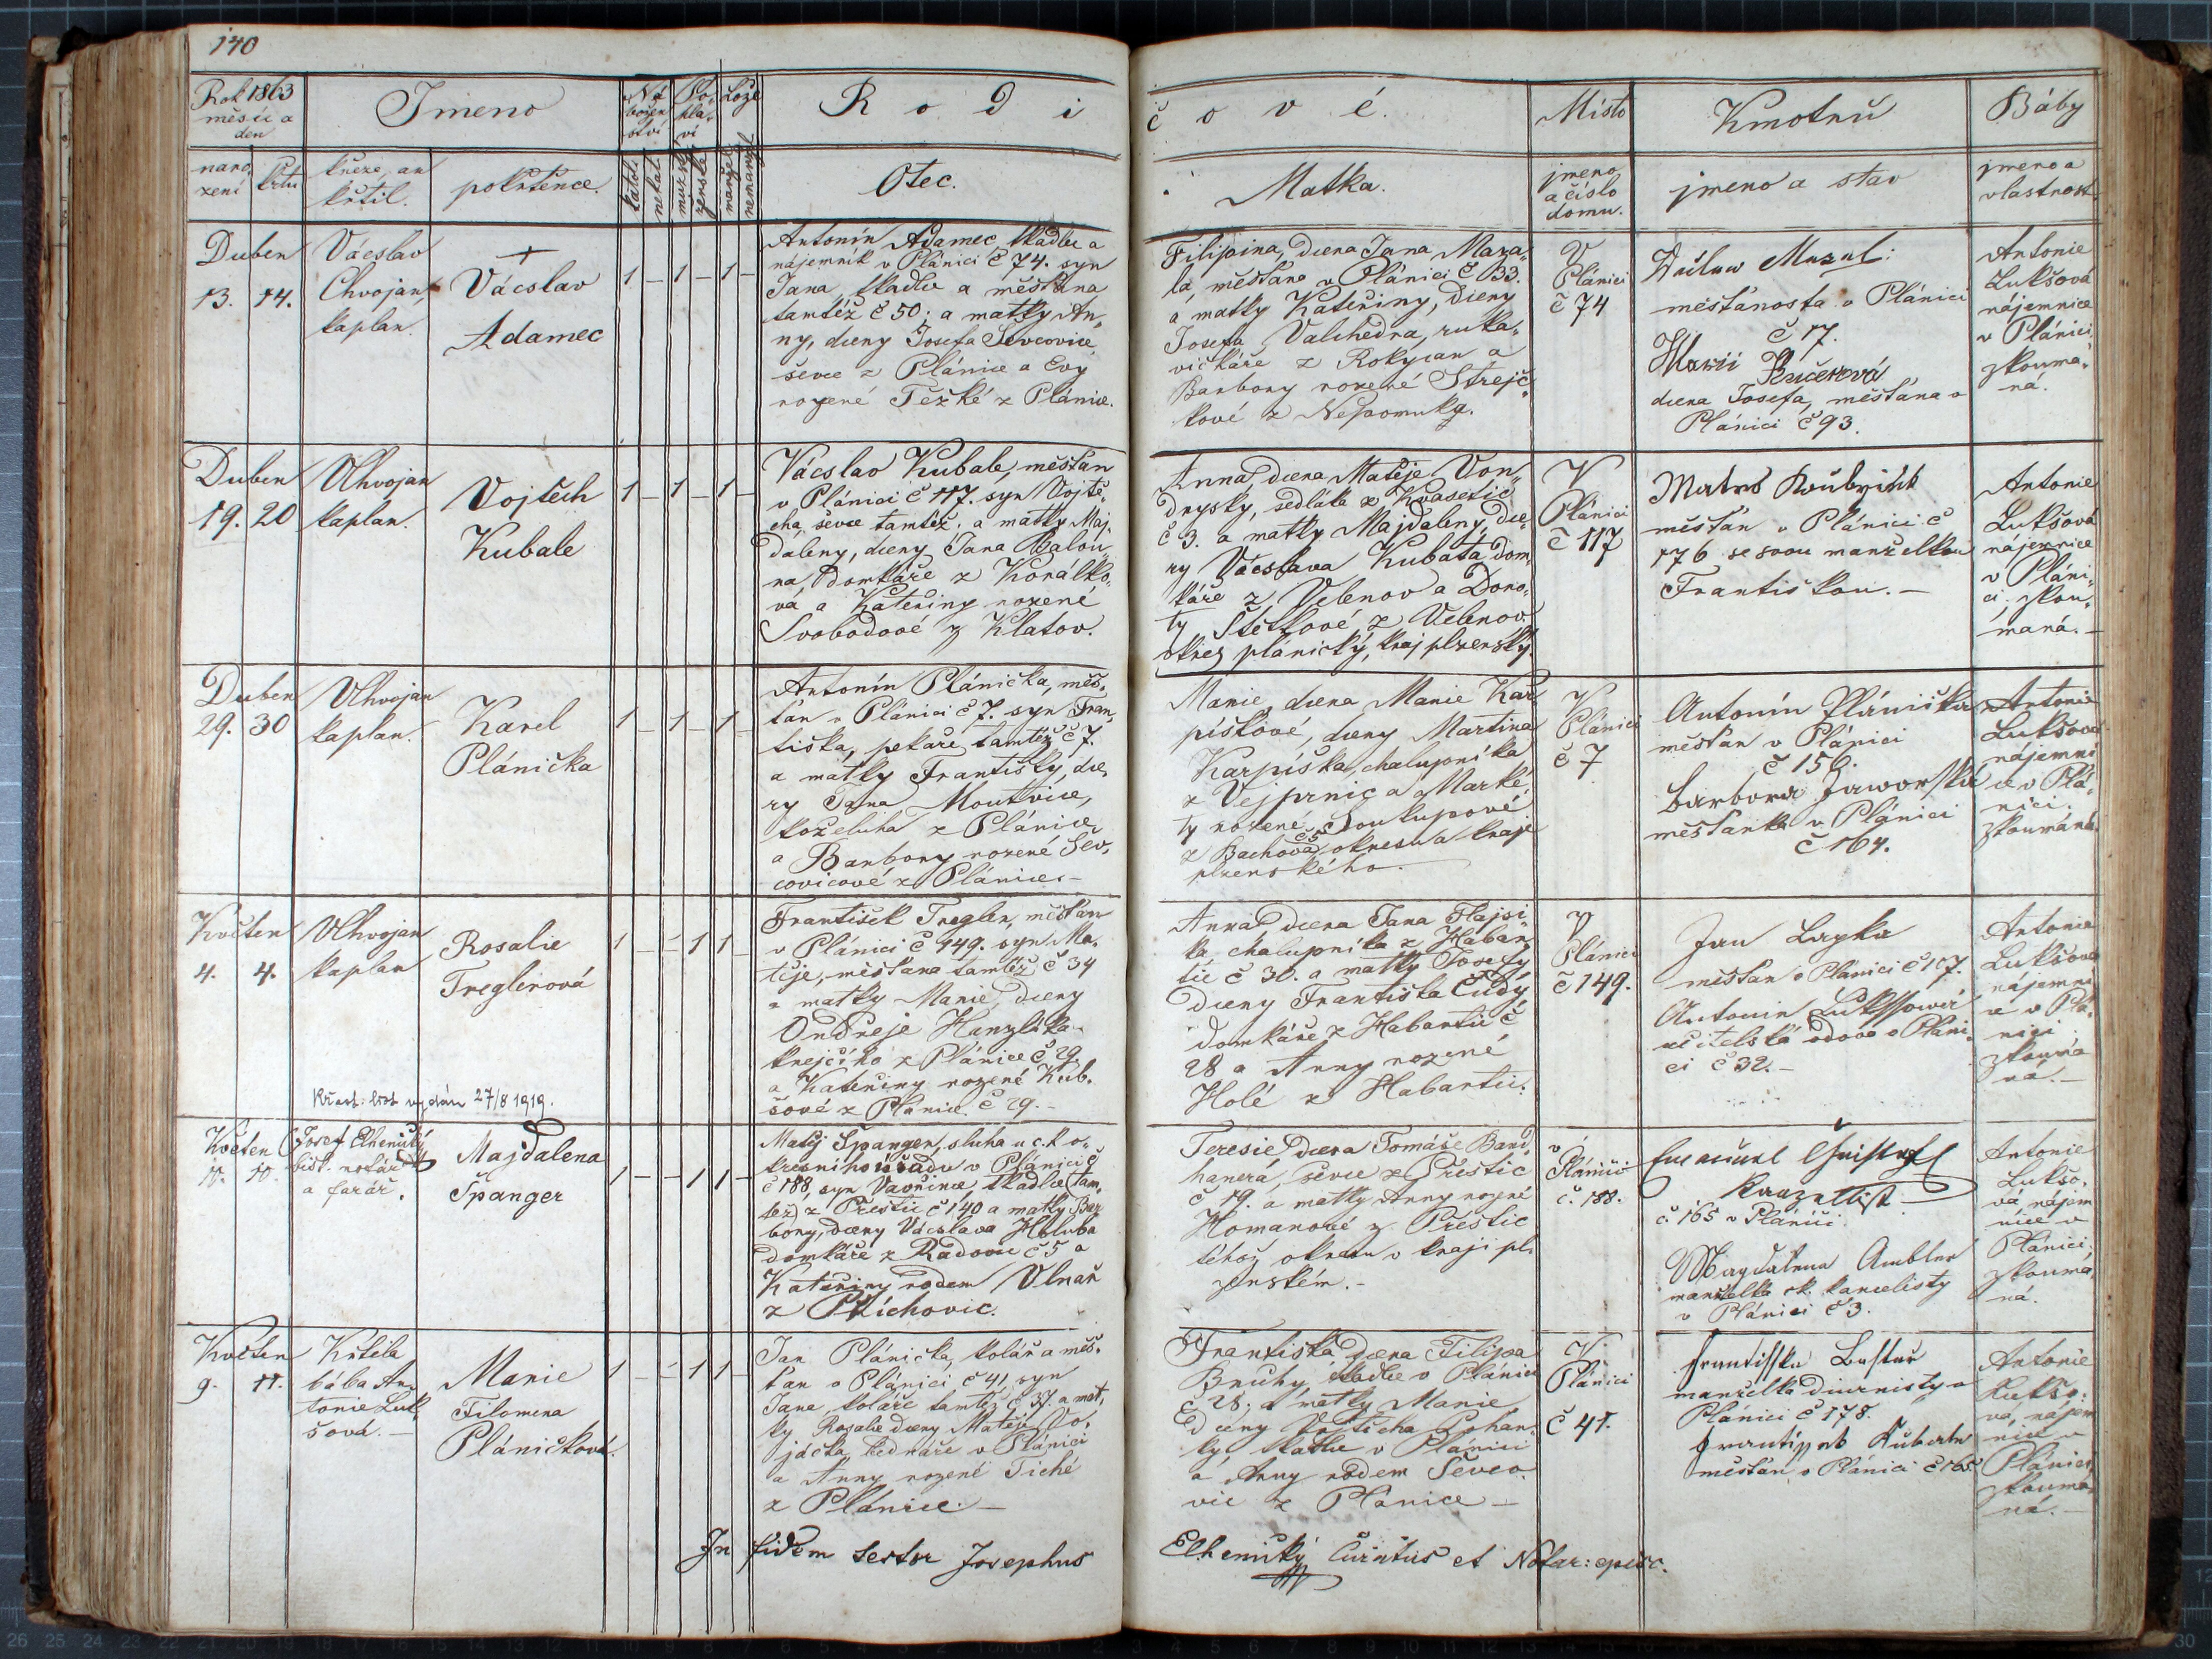 140
Rok 1863
měsíc a
den
naro
zení
křtu
Jmeno
kněze, an
křtil.
pokřtěnce.
Ná
božen
ství
katol.
nekat.
Po-
hla-
ví
mužské
ženské
Lože
manžel.
nemanžel.
R o d i
Otec.
č o v é.
Matka.
Místo
jmeno
a číslo
domu.
Kmotrů
jmeno a stav
Báby
jmeno a
vlastnost.
Duben
13. 14.
Vácslav
Chvojan
kaplan.
+
Vácslav
Adamec
1 – 1 – 1 –
Antonín Adamec, tkadlec a
nájemník v Plánici č 74. syn
Jana, tkadlce a měšťana
tamtéž č 50; a matky An„
ny, dcery Josefa Ševcovice
ševce z Plánice a Evy
rozené Težké z Plánice.
Filipina, dcera Jana Maza„
la, měšťana v Plánici č 133.
a matky Kateřiny, dcery
Josefa Valchedra, ruka„
vičkáře z Rokycan a
Barbory rozené Strejč„
kové z Nepomuky.
V
Plánici
č 74
Václaw Mazal:
měšťanosta v Plánici
č 17.
Marii Kučerová
dcera Josefa, měšťana v
Plánici č 93.
Antonie
Lukšová
nájemnice
v Plánici.
zkouma„
ná.
Duben
19. 20
VChvojan
kaplan.
Vojtěch
Kubale
1 – 1 – 1 –
Vácslav Kubale, měšťan
v Plánici č 117. syn Vojtě„
cha, ševce tamtéž; a matky Maj„
daleny, dcery Jana Balou„
na, domkáře z Korálko„
va a Kateřiny rozené
Svobodové z Klatov.
Anna, dcera Matěje Von„
drysky, sedláka z Kvasetic
č 3. a matky Majdaleny, dce„
ry Vácslava Kubata, dom„
káře z Velenov a Doro„
ty Štětkové z Velenov.
okres plánický, kraj plzenský.
V
Plánici
č 117
měšťan v Plánici č
176 se svou manželkou
Františkou. –
Antonie
Lukšová
nájemnice
v Pláni„
ci, zkou„
maná. –
Duben
29. 30
VChvojan
kaplan.
Karel
Plánička
1 – 1 – 1 –
Antonín Plánička, měš„
ťan v Plánici č 7. syn Fran„
tiška, pekaře tamtéž č 7.
a matky Františky, dce„
ry Jana Moutvice,
koželuha z Plánice
a Barbory rozené Šev„
covicové z Plánice. –
Marie, dcera Marie Kar„
píškové, dcery Martina
Karpíška, chalupníka
z Vejprnic a Marké„
ty rozené Soukupové
z Bachova č 5 okresu a kraje
plzenského. –
V
Plánici
č 7
Antonín Plánička
měšťan v Plánici
č 159.
barbora Jaworska
měšťanka v Plánici
č 164.
Antonie
Lukšová
nájemni
ce v Plá„
nici.
zkoumána.
Květen
4. 4.
VChvojan
kaplan
Rosalie
Treglerová
1 – – 1 1 –
František Tregler, měšťan
v Plánici č 149. syn Ma„
těje, měšťana tamtéž č 34
a matky Marie, dcery
Ondřeje Hanzlika
krejčího z Plánice č 29.
a Kateřiny rozené Kub„
šové z Plánice č 29. –
Křest: list vydán 27/8 1919.
Anna, dcera Jana Flajsi„
ka, chalupníka z Habar„
tic č 30. a matky Josefy
dcery Františka Čudy,
domkáře z Habartic č
28 a Anny rozené
Holé z Habartic.
V
Plánici
č 149.
Jan Lapka
měšťan v Plánici č 107.
Antonin Lukssowá
učitelská vdova v Pláni„
ci č 32. –
Antonie
Lukšová
nájemni
ce v Plá„
nici
zkouma
ná. –
Květen
10. 10.
Josef Elhenický
bisk. notář
a farář.
Majdalena
Španger
1 – – 1 1 –
Matěj Španger, sluha u c. k o„
kresního úřadu v Plánici
č 188, syn Vavřince, tkadlce (tam„
též) z Přeštic č 140 a matky Bar
bory, dcery Vácslava Hluba
domkáře z Radovic č 5 a
Kateřiny rodem Vlnař
z Přichovic.
Teresie, dcera Tomáše Band„
hauera, ševce z Přeštic
č 19. a matky Anny rozené
Homanové z Přeštic
téhož okresu v kraji pl„
zenském. –
v
Plánici
č. 188.
Emanuel
Kanzellist
č 165 v Plánici
Magdalena Ambler
manželka ok. kancelisty
v Plánici č 3.
Antonie
Lukšo„
vá nájem
nice v
Plánici,
zkouma„
ná.
Květen
9. 11.
Křtila
bába An„
tonie Luk„
šová. –
Marie
Filomena
Pláničková.
1 – – 1 1 –
Jan Plánička, kolář a měš„
ťan v Plánici č 41, syn
Jana, koláře tamtéž č 37. a mat„
ky Rosalie dcery Matěje Vo„
jáčka, bednáře v Plánici
a Anny rozené Tiché
z Plánice. –
Františka, dcera Filipa
Bruhy, tkadlce v Plánici
č 28; a matky Marie
dcery Vojtěcha Pohan„
ky, tkadlce v Plánici
a Anny rodem Ševco„
vic z Plánice –
V.
Plánici
č 41.
Frantisska Bastar
manželka diurnisty v
Plánici č 178.
Frantissek Kubale
měšťan v Plánici č 165
Antonie
Lukšo„
vá, nájem
nice v
Plánici,
zkouma„
ná. –
In fidem testor Josephus
Elhenický Curatus et Notar: episc.